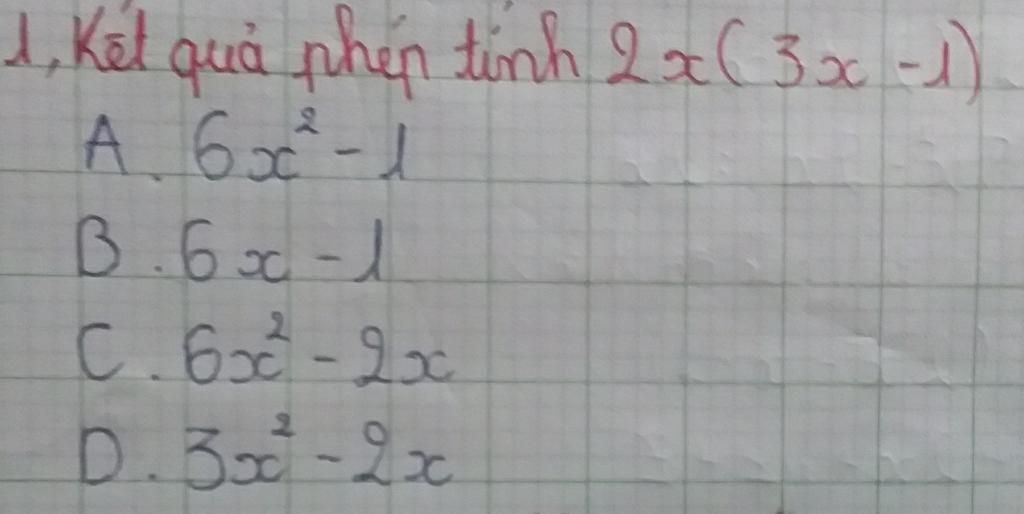 1, Kết quả phép tính 2x(3x - 1)
A. 6x² - 1
B. 6x - 1
C. 6x² - 2x
D. 3x² - 2x